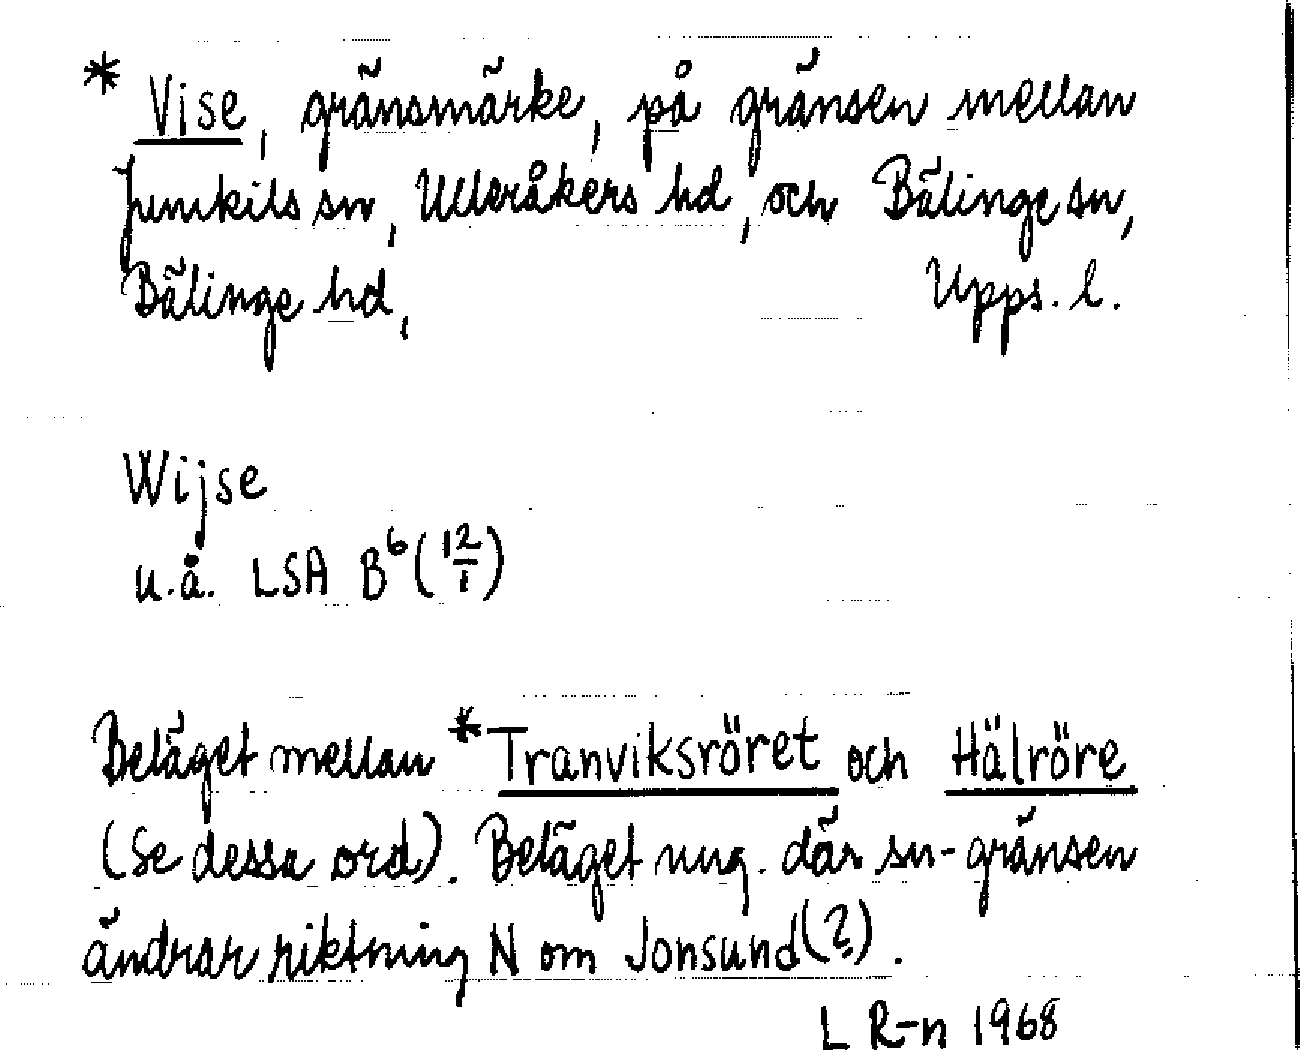 * Vise, gränsmärke, på gränsen mellan
Jumkils sn, Ulleråkers hd, och Bälinge sn,
Bälinge hd, Upps. l.
Wijse
u.å. LSA B⁶ (12/1)
Beläget mellan *Tranviksröret och Hälröre
(Se dessa ord). Beläget ung. där sn-gränsen
ändrar riktning N om Jonsund(?).
L R-n 1968